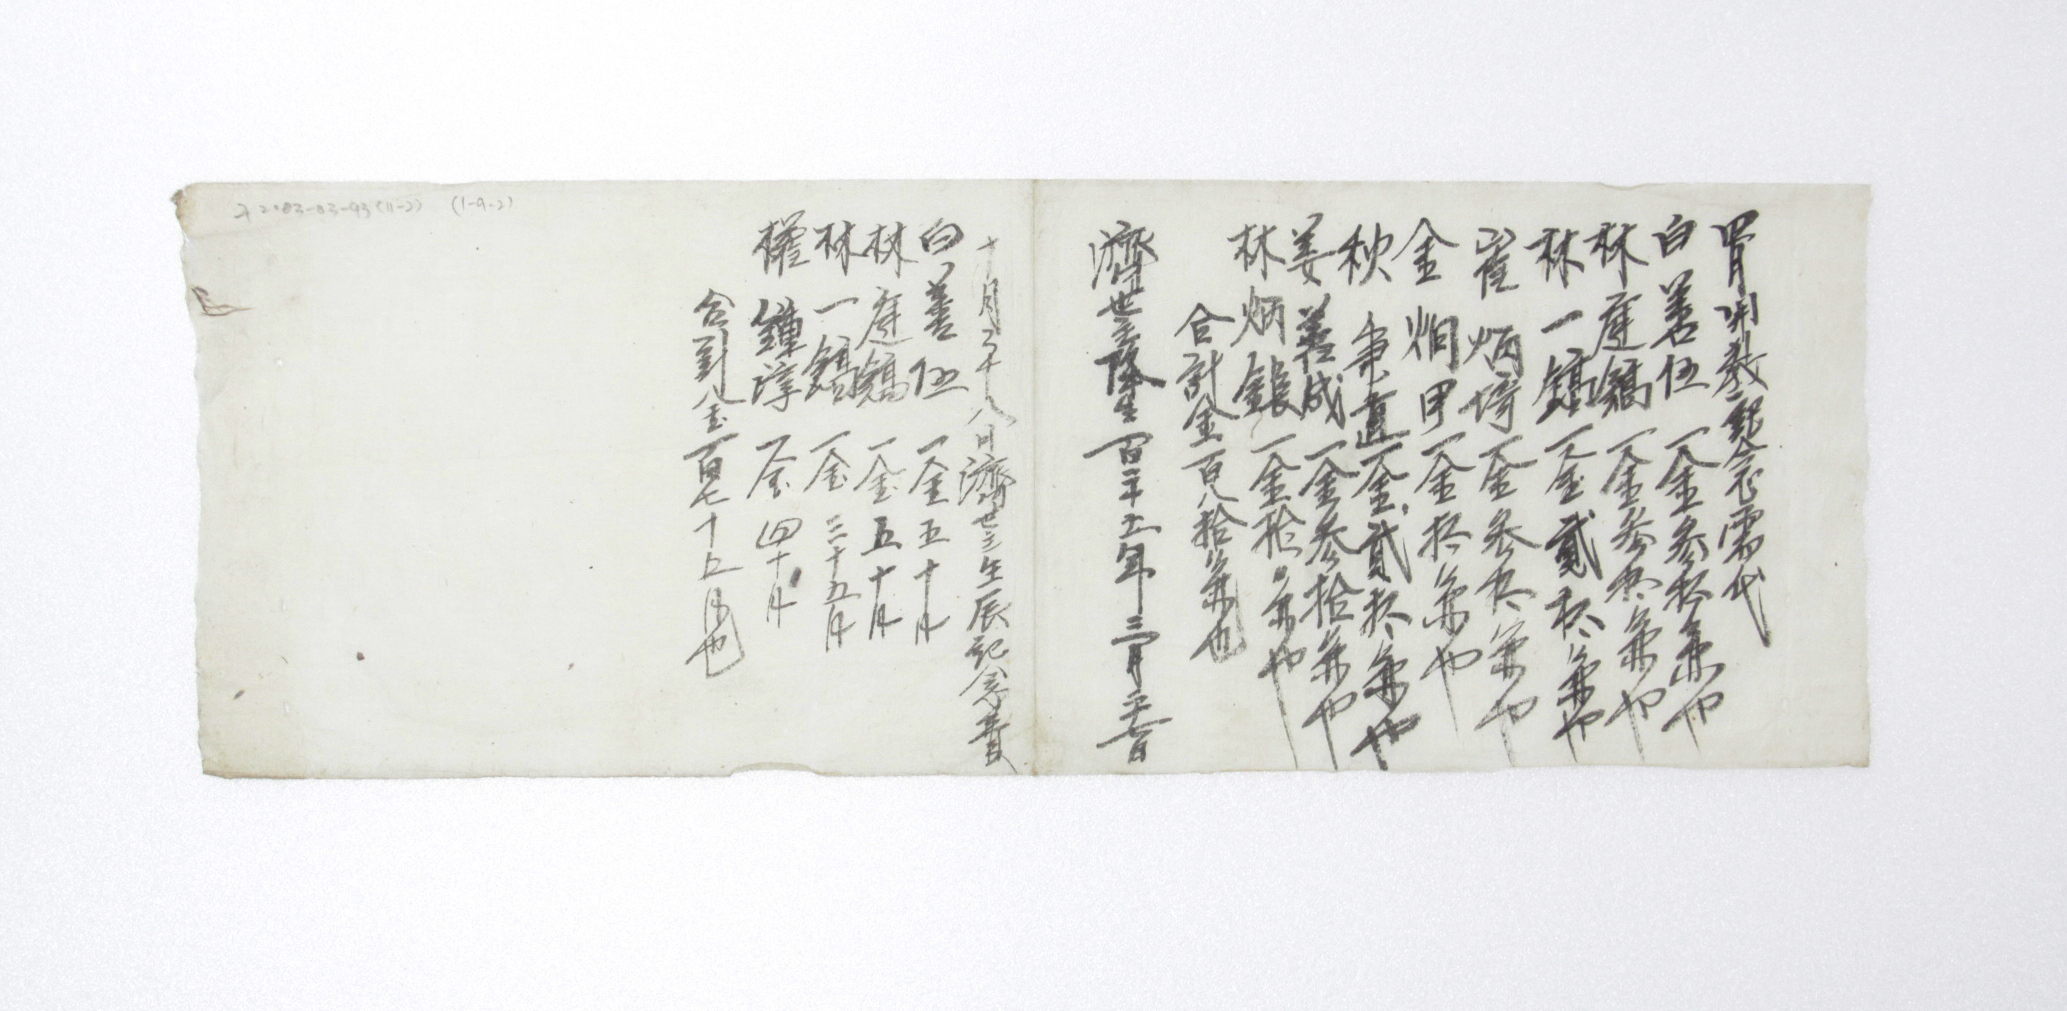 구2003-03-93(11-2) (1-9-2)
四月開教記念需代
白善伍 一金參拾兩也
林庭鎬 一金參拾兩也
林一鎬 一金貳拾兩也
崔炳埼 一金參拾兩也
金炯甲 一金拾兩也
秋秉直 一金貳拾兩也
姜善成 一金參拾兩也
林炳銀 一金拾兩也
合計金百八拾兩也
濟世主降生一百二十五年三月二十七日
十月二十八日濟世主生辰記念費
白善伍 一金五十円
林庭鎬 一金五十円
林一鎬 一金三十五円
權鍾淳 一金四十円
合計金一百七十五円也